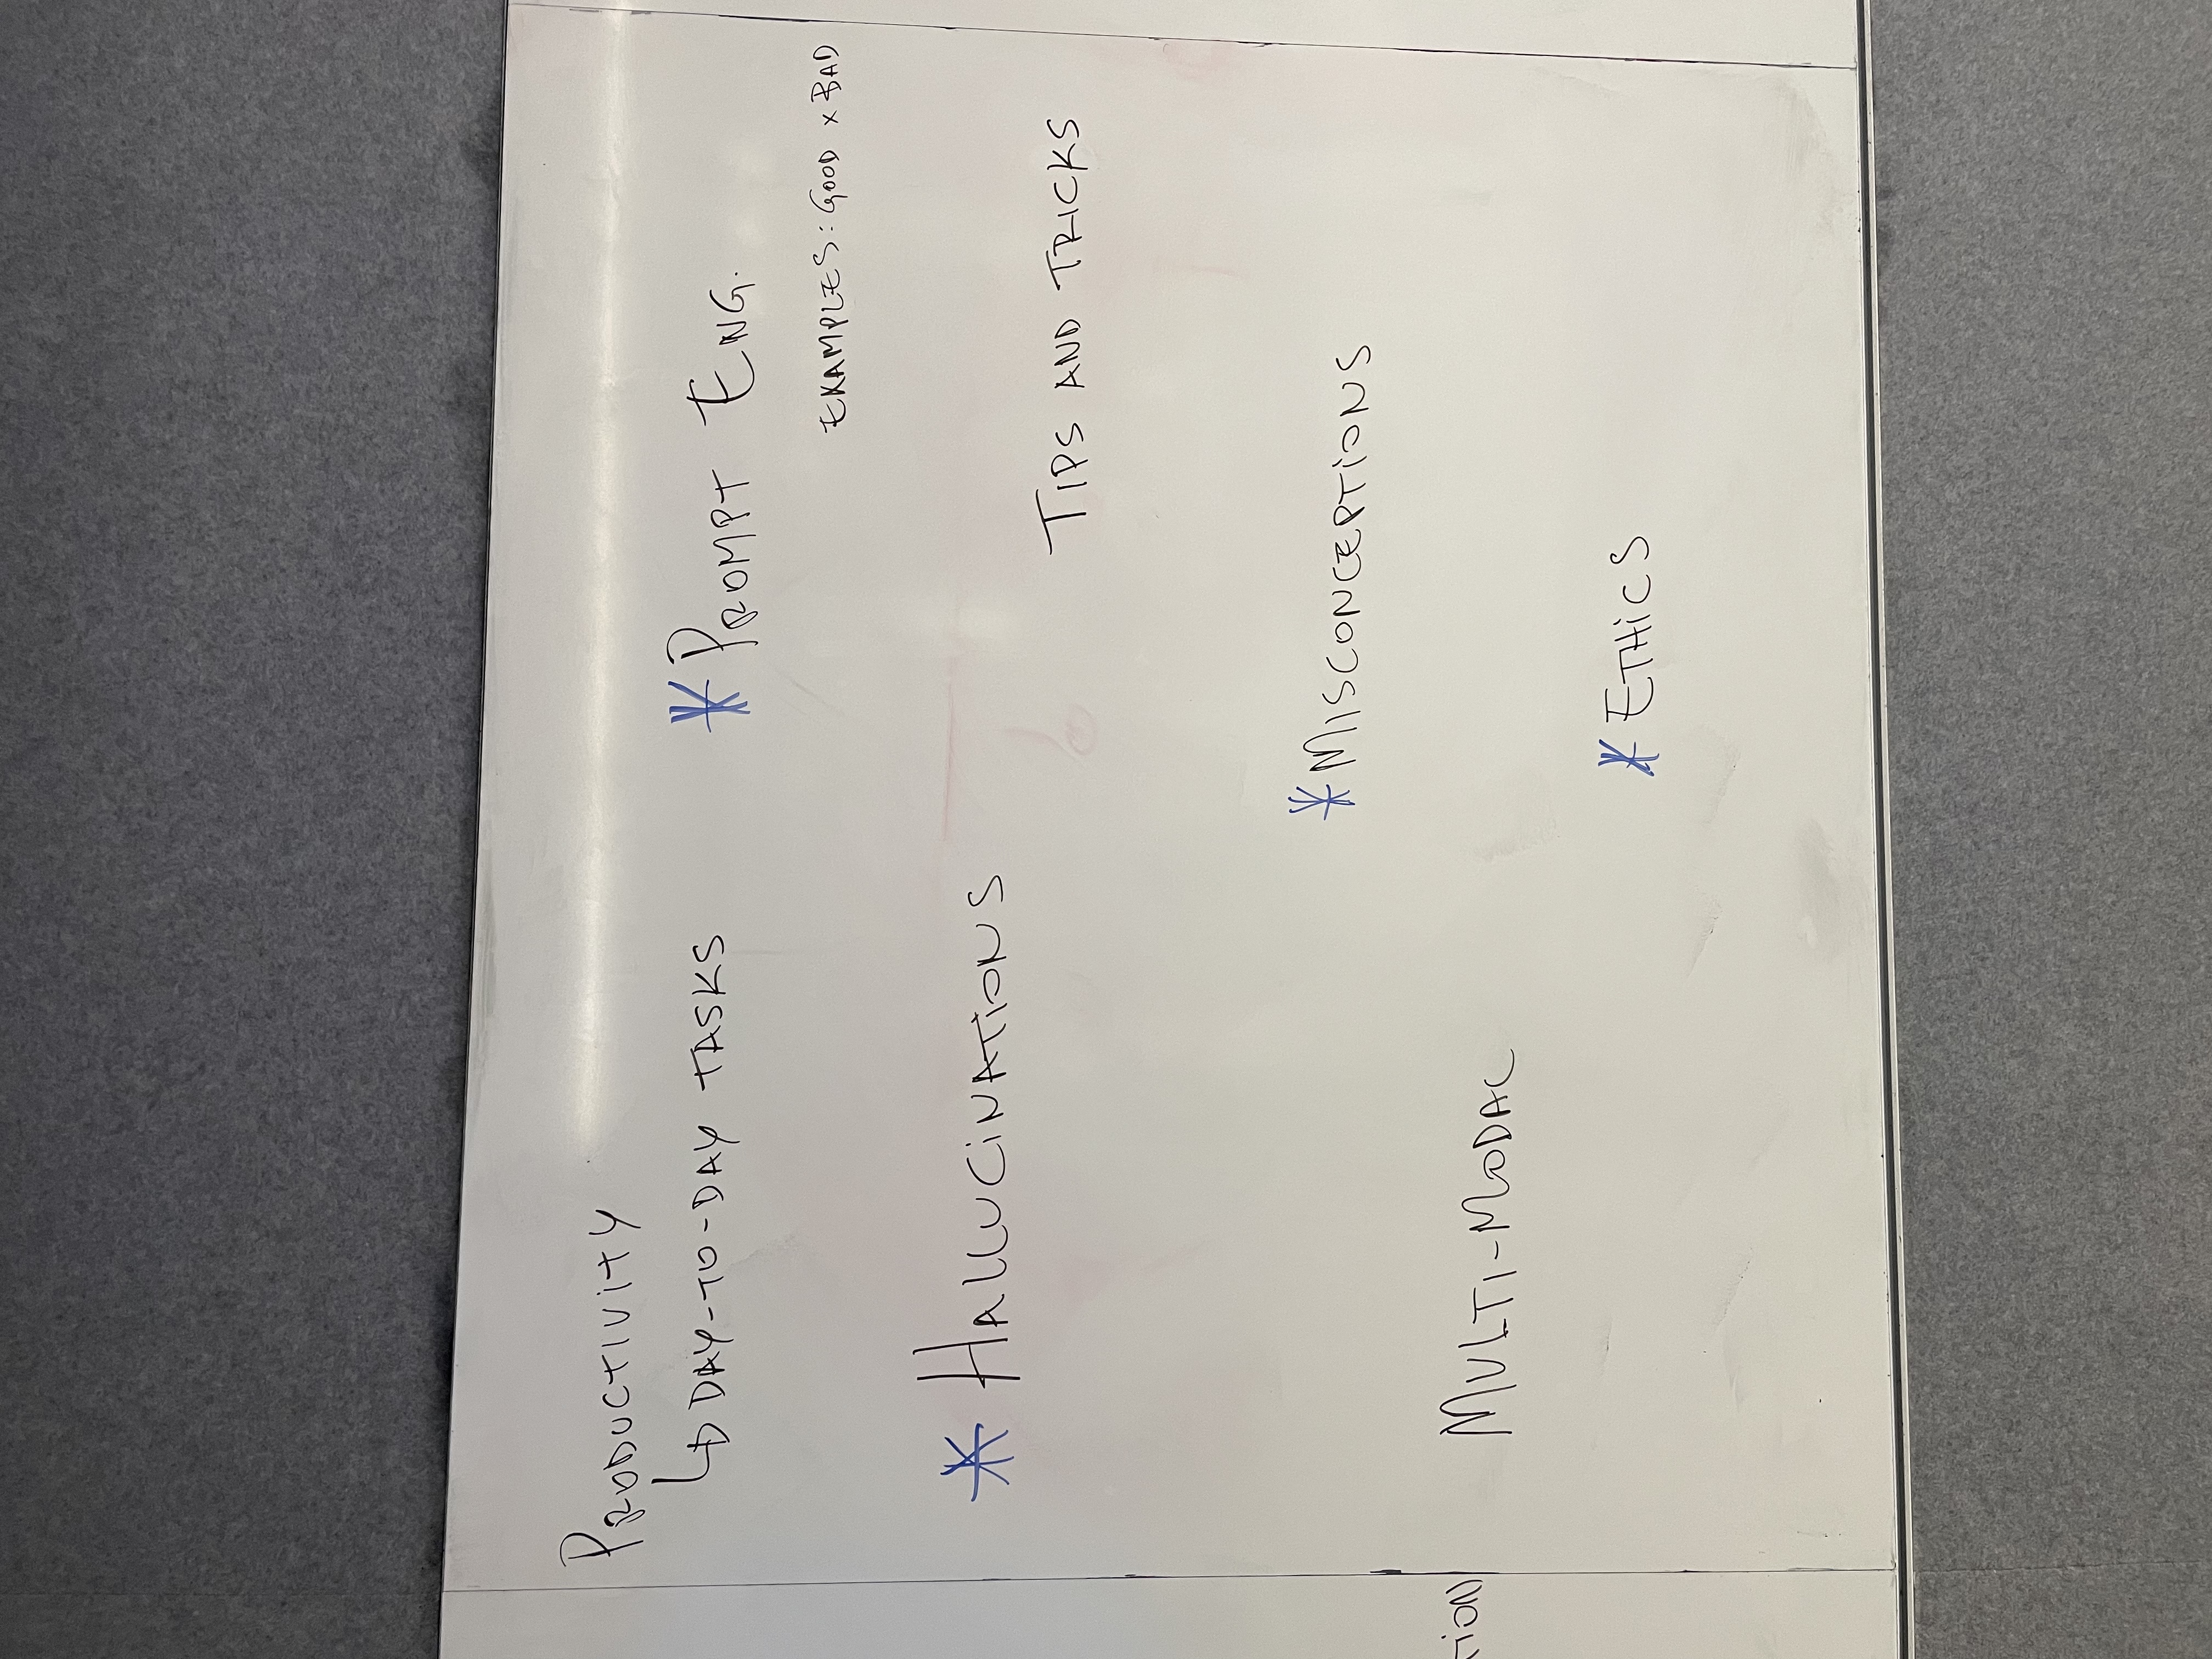 PRODUCTIVITY
↳ DAY-TO-DAY TASKS
* PROMPT ENG.
EXAMPLES: GOOD x BAD
* HALLUCINATIONS
TIPS AND TRICKS
* MISCONCEPTIONS
TION)
MULTI-MODAL
* ETHICS